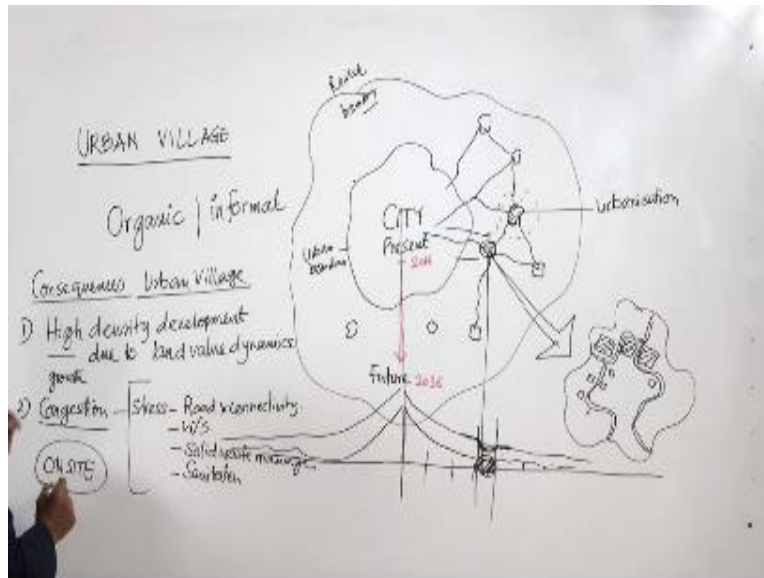 URBAN VILLAGE
Organic | informal
Consequences Urban Village
1) High density development
due to land value dynamics
growth
2) Congestion - Stress - Road & connectivity
- W/S
- Solid waste
- Sanitation
ON SITE
CITY
Present
Urban
Future
Urbanisation